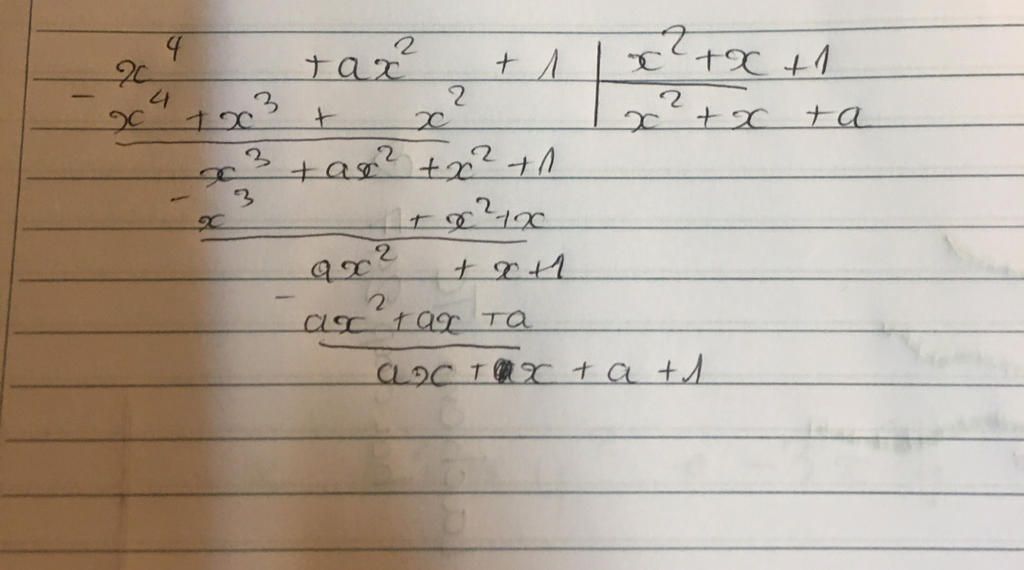 x⁴ + ax² + 1 | x² + x + 1
- x⁴ + x³ + x² | x² + x + a
x³ + ax² + x² + 1
- x³ + x² + x
ax² + x + 1
- ax² + ax + a
ax + x + a + 1